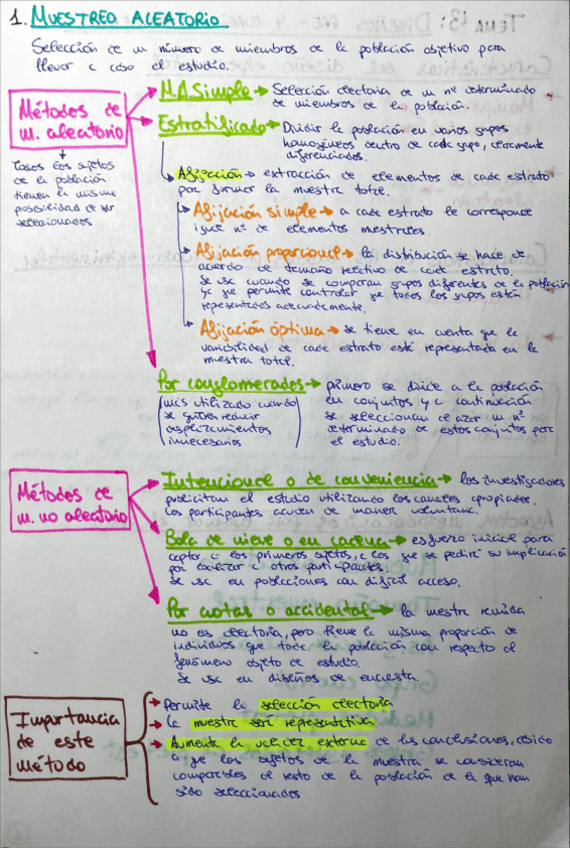 1. MUESTREO ALEATORIO
Selección de un número de miembros de la población objetivo para
llevar a cabo el estudio.
Métodos de
m. aleatorio
todos los sujetos
de la población
tienen la misma
posibilidad de ser
seleccionados
M.A Simple → Selección aleatoria de un nº determinado
de miembros de la población.
Estratificado → Dividir la población en varios grupos
homogéneos dentro de cada grupo, claramente
diferenciados.
Afijación → extracción de elementos de cada estrato
para formar la muestra total.
Afijación simple → a cada estrato le corresponde
igual nº de elementos muestrales.
Afijación proporcional → la distribución se hace de
acuerdo de tamaño relativo de cada estrato.
Se usa cuando se comparan grupos diferentes de la población
ya que permite controlar que todos los grupos estén
representados adecuadamente.
Afijación óptima → se tiene en cuenta que la
variabilidad de cada estrato esté representada en la
muestra total.
Por conglomerados → primero se divide a la población
en conjuntos y a continuación
se seleccionan al azar un nº
determinado de estos conjuntos para
el estudio.
(más utilizado cuando
se quieren reducir
desplazamientos
innecesarios)
Métodos de
m. no aleatorio
Intencional o de conveniencia → los investigadores
publicitan el estudio utilizando los canales apropiados.
Los participantes acuden de manera voluntaria.
Bola de nieve o en cadena → esfuerzo inicial para
captar a los primeros sujetos, a los que se pedirá su implicación
para localizar a otros participantes.
Se usa en poblaciones con difícil acceso.
Por cuotas o accidental → la muestra reunida
no es aleatoria, pero tiene la misma proporción de
individuos que toda la población con respecto al
fenómeno objeto de estudio.
Se usa en diseños de encuesta.
Importancia
de este
método
Permite la selección aleatoria
La muestra será representativa
Aumenta la validez externa de las conclusiones, debido
a que los sujetos de la muestra se consideran
comparables al resto de la población de la que han
sido seleccionados